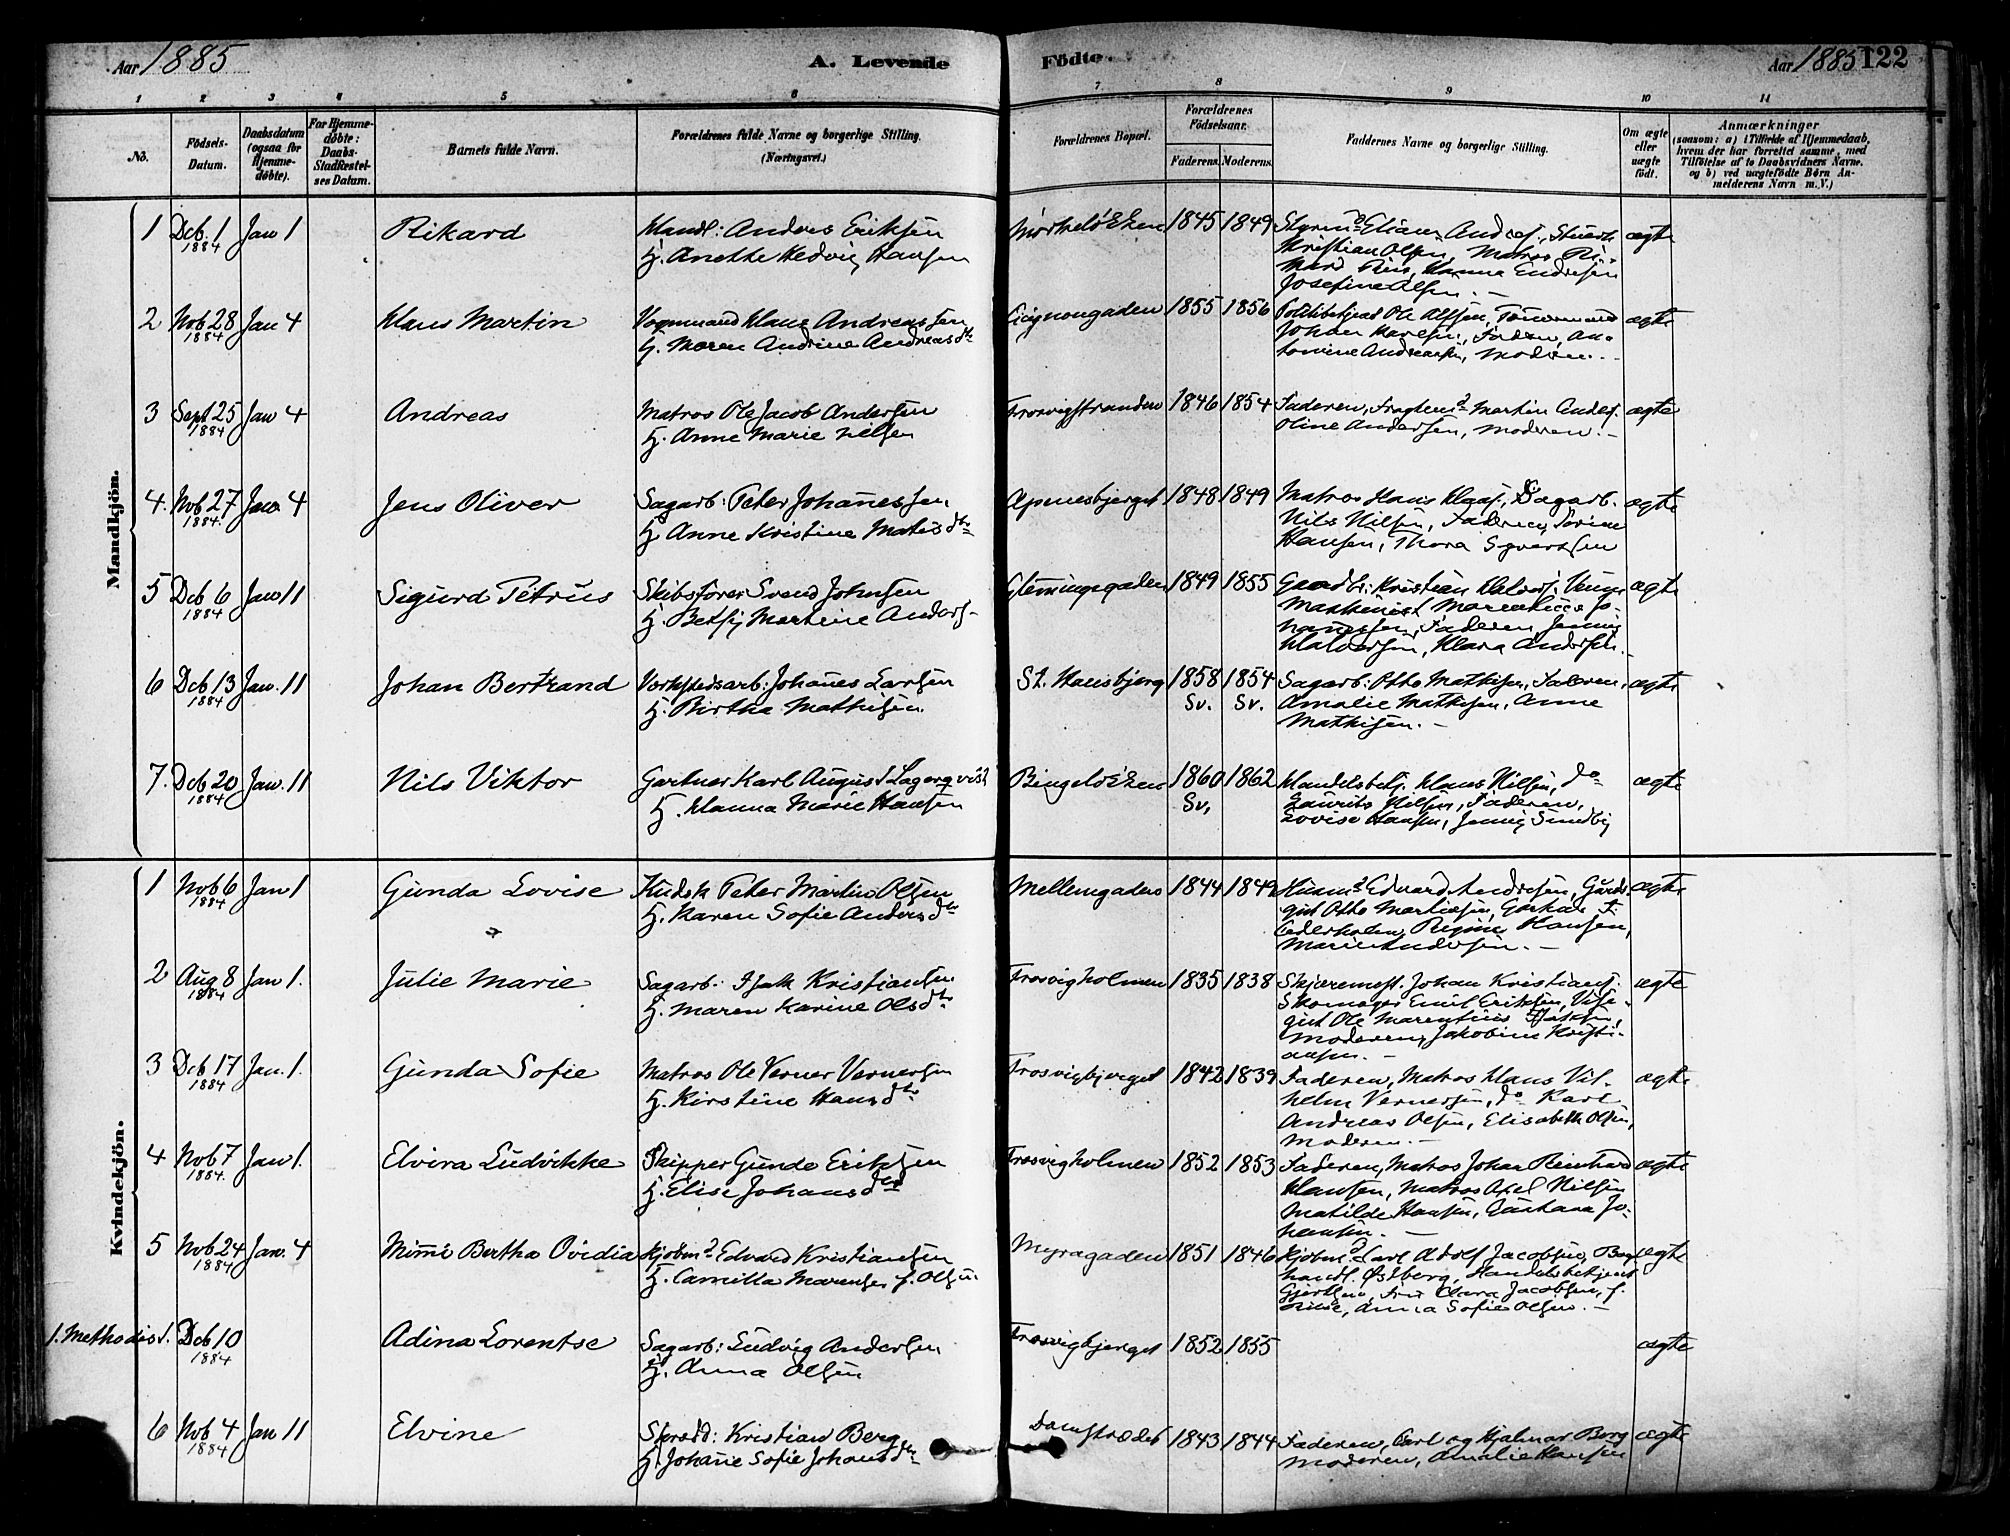 Aar 1885
A. Levende Födte.
Aar 1885 122
1 2 3 4 5 6 7 8 9 10 11
No.
Födsels-Datum.
Daabsdatum (ogsaa for Hjemme-döbte).
For Hjemme-döbte: Daabs-Stadfæstel-ses Datum.
Barnets fulde Navn.
Forældrenes fulde Navne og borgerlige Stilling.
(Næringsvei.)
Forældrenes Bopæl.
Forældrenes Födselsaar.
Faderens. Moderens.
Faddernes Navne og borgerlige Stilling.
Om ægte eller uægte födt.
Anmærkninger
(saasom: a) i Tilfælde af Hjemmedaab,
hvem der har forrettet samme, med
Tilföielse af to Daabsvidners Navne.
og b) ved uægtefödte Børn An-
melderens Navn m. V.)
Mandkjön.
1 Dcb. 1 1884 Jan 1 Rikard
Handl: Anders Eriksen
H. Anette Hedvig Hansen
1845 1849
Kristian Olsen, Matros
Josefine Olsen. ægte
2 Nob 28 1884 Jan 4 Klaus Martin
Vognmand Klaus Andreassen
H. Maren Andrine Andreasdtr
Cicignongaden 1855 1856
Politibetjent Ole Olsen, Tømmermand
Johan Karlsen, Faderen, An-
tonine Andreasen, Moderen. ægte
3 Sept 25 1884 Jan 4 Andreas
Matros Ole Jacob Andersen
H. Anne Marie Nilsen
Trosvigstranden 1846 1854
Faderen, Fragtem. Martin Anders.
Oline Andersen, Moderen. ægte
4. Nob 27 1884. Jan 4 Jens Oliver
Sagarb: Peter Johanessen
H. Anne Kristine Matisdtr
Apenesbjerget 1848 1849
Matros Hans Klaus., Sagarb.
Nils Nilsen, Faderen,
Hansen, Thora Syversen ægte
5 Dcb 6 1884 Jan 11 Sigurd Petrus
Skibsfører Svend Johnsen
H. Betsy Martine Anders.
Glemmingegaden 1849 1855
Kristian
Maskinist Marentius Jo-
hannessen, Faderen Jenny
Halvorsen, Klara Andersen. ægte
6 Dcb 13 1884 Jan. 11 Johan Bertrand
Værkstedsarb: Johanes Larsen
H. Birthe Mathisen
St. Hansbjerg 1858 Sv. 1854 Sv.
Sagarb: Otto Mathisen, Faderen,
Amalie Mathisen, Anne
Mathisen. ægte
7. Dcb 20 1884 Jan. 11 Nils Viktor
Gartner Karl August Lagerqvist
H. Hanna Marie Hansen
Bingeløkken 1860 Sv. 1862
Handelsbetj. Klaus Nilsen, do
Laurits Nilsen, Faderen,
Lovise Hansen, Jenny Sundby ægte
Kvindekjön.
1 Nob 6 1884 Jan 1 Gunda Lovise
Kudsk Peter Martin Olsen
H. Karen Sofie Andersdtr
Mellemgaden 1844 1849
Edvard Andresen, Gaards-
gut Otto Martinsen,
Cederholm, Regine Hansen,
Marie Andersen. ægte
2 Aug 8 1884 Jan 1. Julie Marie
Sagarb. Isak Kristiansen
H. Maren Karine Olsdtr
Trosvigholmen 1835 1838
Skjæremest. Johan Kristians.
Skomager Emil Eriksen, Vise-
gut Ole Marentius Isaksen,
Moderen, Jakobine Kristi-
ansen. ægte
3 Dcb 17 1884 Jan. 1. Gunda Sofie
Matros Ole Verner Vernersen
H. Kirstine Hansdtr
Trosvigbjerget 1842 1839
Faderen, Matros Klaus Vil-
helm Vernersen, do Karl
Andreas Olsen, Elisabeth Olsen,
Moderen. ægte
4 Nob 7 1884. Jan 1. Elvira Ludvikke
Skipper Gunde Eriksen
H. Elise Johansdtr
Trosvigholmen 1852 1853
Faderen, Matros Johan Reinhard
Hansen, Matros Axel Nilsen
Matilde Hansen, Jo-
hansen. ægte
5 Nob 24 1884 Jan. 4 Mimmi Bertha Ovidia
Kjøbmd Edvard Kristiansen
H. Camilla f. Olsen
Myragaden 1851 1846
Kjøbmd Carl Adolf Jacobsen,
handl. Østberg, Handelsbetjent
Gjertsen, Fru Clara Jacobsen, f.
Anna Sofie Olsen. ægte
1. Methodist. Dcb 10 1884 Adina Lorentse
Sagarb: Ludvig Andersen
H. Anna Olsen
Trosvigbjerget 1852 1855 ægte
6 Nob 4 1884 Jan 11 Elvine
Skrædd: Kristian Berg
H. Johane Sofie Johansdtr
Damstrædet 1843 1844
Faderen, Carl og Hjalmar Berg
Moderen, Amalie Hansen ægte